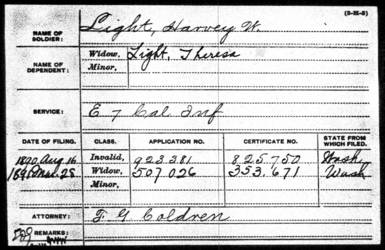 (3-25-5)
NAME OF SOLDIER: Light, Harvey W.
NAME OF DEPENDENT: Widow, Light, Theresa
Minor,
SERVICE: E 7 Cal. Inf
DATE OF FILING. CLASS. APPLICATION NO. CERTIFICATE NO. STATE FROM WHICH FILED.
1890 Aug. 16 Invalid, 923.381 825.750 Wash
Mar. 25 Widow, 507 026 353.671 Wash
Minor,
ATTORNEY: F. G. Coldren
REMARKS: